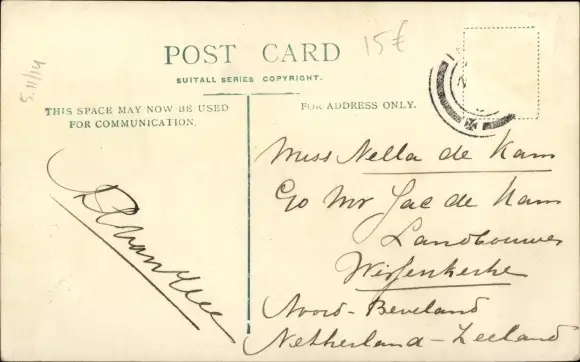 15€
POST CARD
SUITALL SERIES COPYRIGHT.
5.11/14
THIS SPACE MAY NOW BE USED
FOR COMMUNICATION.
FOR ADDRESS ONLY.
Miss Nella de Kam
c/o Mr Jac de Kam
Landbouwer
Wissenkerke
Noord-Beveland
Netherland-Zeeland